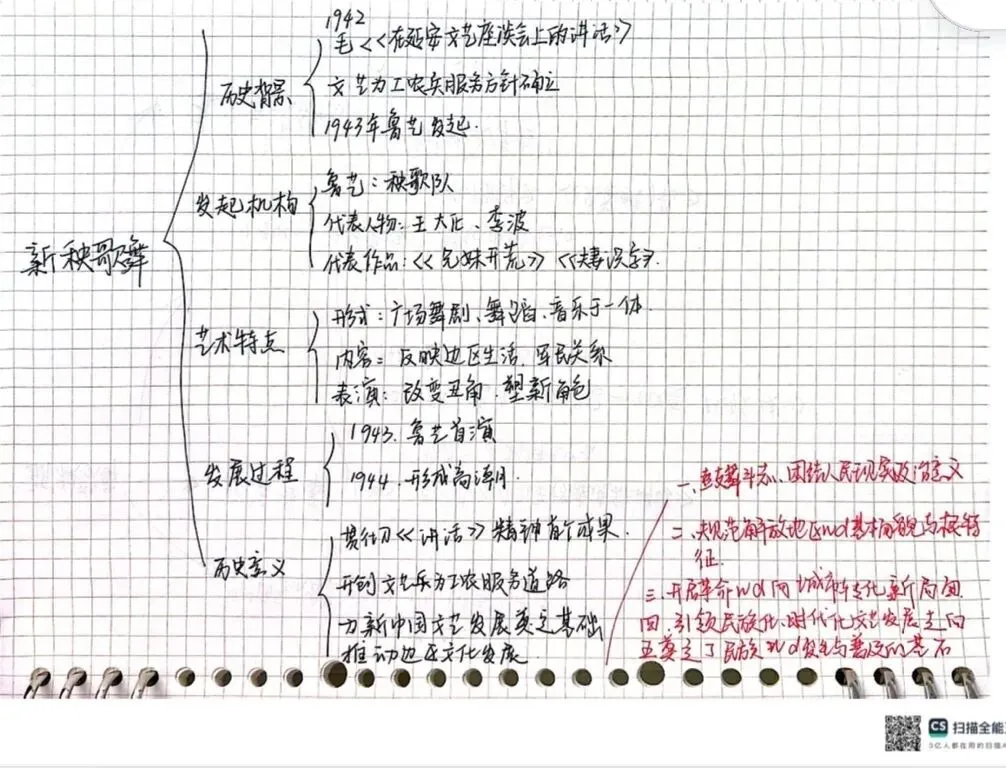 新秧歌舞
历史背景
1942
毛<<在延安文艺座谈会上的讲话》
文艺为工农兵服务方针确立
1943年鲁艺发起.
发起机构
鲁艺：秧歌队
代表人物：王大化、李波
代表作品：<<兄妹开荒》<<夫妻识字》.
艺术特点
形式：广场舞剧、舞蹈、音乐于一体.
内容：反映边区生活.军民关系
表演：改变丑角.塑新角色
发展过程
1943.鲁艺首演
1944.形成高潮.
历史意义
贯彻<<讲话》精神首个成果.
开创文艺兵为工农服务道路
为新中国文艺发展奠定基础
推动边区文化发展.
一.鼓舞斗志、团结人民现实政治意义
二.规范解放地区wd基本面貌与根特
征.
三.开启革命wd向城市转化新局面.
四.引领民族化、时代化文艺发展走向
五奠定了民族wd发生与普及的基石
CS 扫描全能
3亿人都在用的扫描A